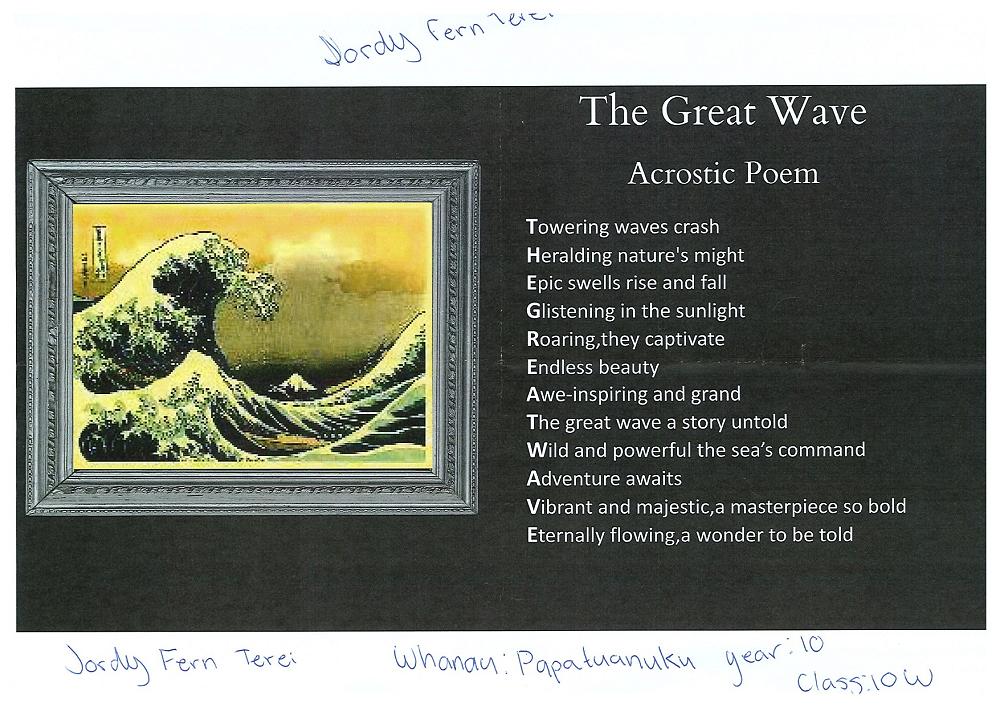 Jordy Fern Terei
The Great Wave
Acrostic Poem
Towering waves crash
Heralding nature's might
Epic swells rise and fall
Glistening in the sunlight
Roaring,they captivate
Endless beauty
Awe-inspiring and grand
The great wave a story untold
Wild and powerful the sea’s command
Adventure awaits
Vibrant and majestic,a masterpiece so bold
Eternally flowing,a wonder to be told
Jordy Fern Terei Whanau: Papatuanuku year:10
Class:10W